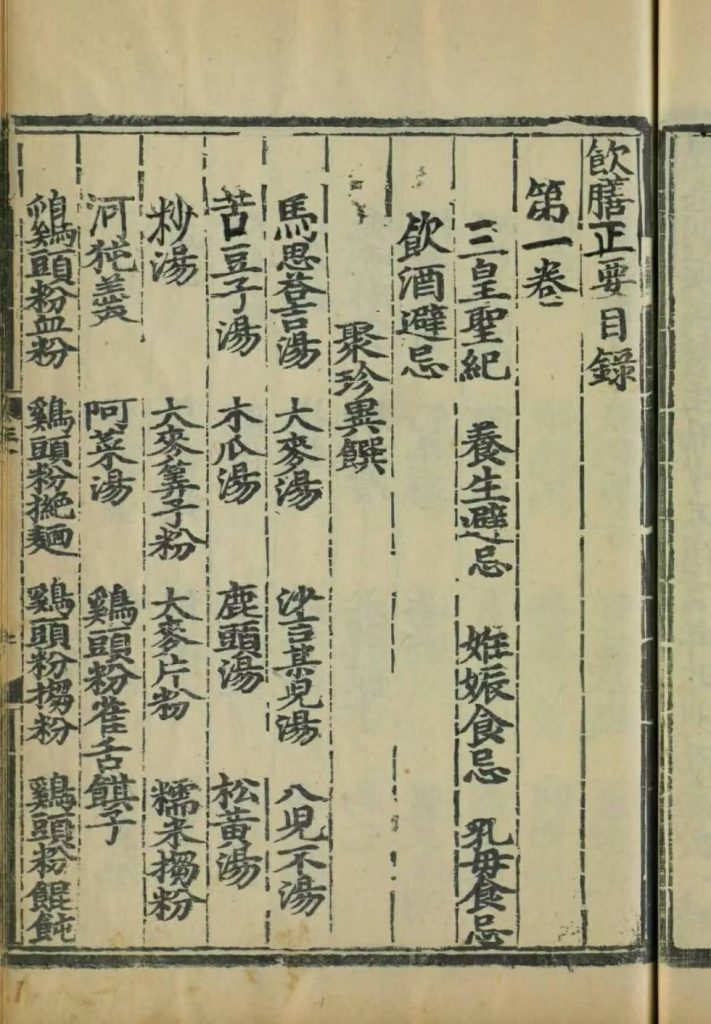 飲膳正要目錄
第一卷
三皇聖紀 養生避忌 姙娠食忌 乳母食忌
飲酒避忌
聚珍異饌
馬思荅吉湯 大麥湯 沙吉某兒湯 八兒不湯
苦豆子湯 木瓜湯 鹿頭湯 松黃湯
炒湯 大麥筭子粉 大麥片粉 糯米搊粉
河㹠羹 阿菜湯 鷄頭粉雀舌餶子
鷄頭粉血粉 鷄頭粉撧麵 鷄頭粉搊粉 鷄頭粉餛飩